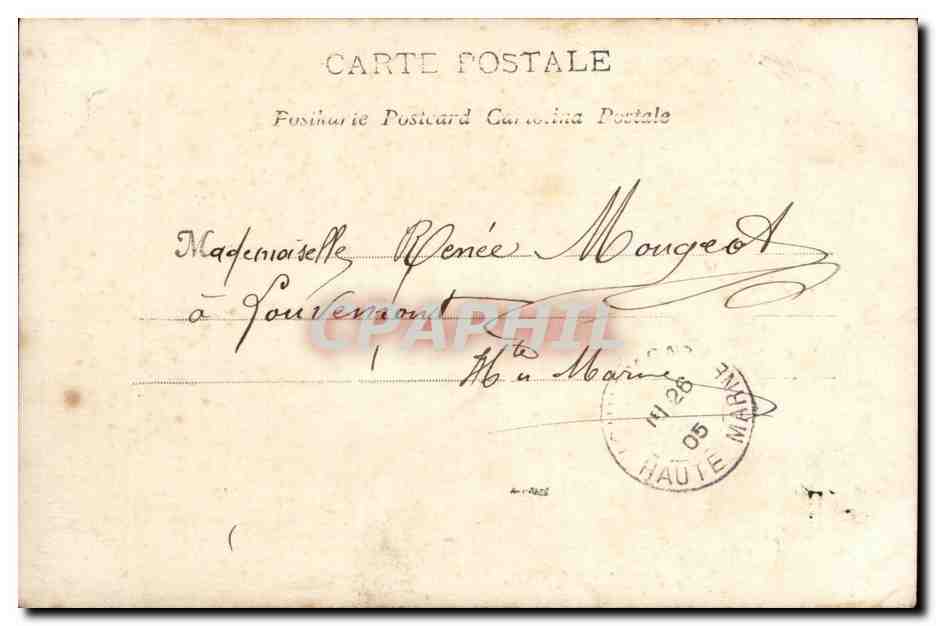 CARTE POSTALE
Postkarte Postcard Cartolina Postale
Mademoiselle Renée Mougeot
à Louvemont
Hte Marne
CPAPHIL
26
05
HAUTE MARNE